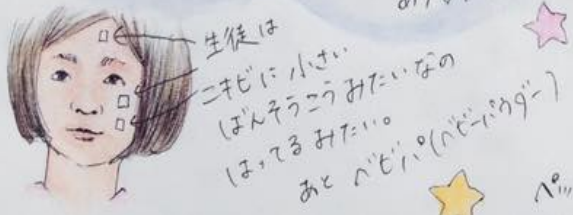 生徒は
ニキビに小さい
ばんそうこうみたいなの
はってるみたい。
あと ベビパ(ベビーパウダー)